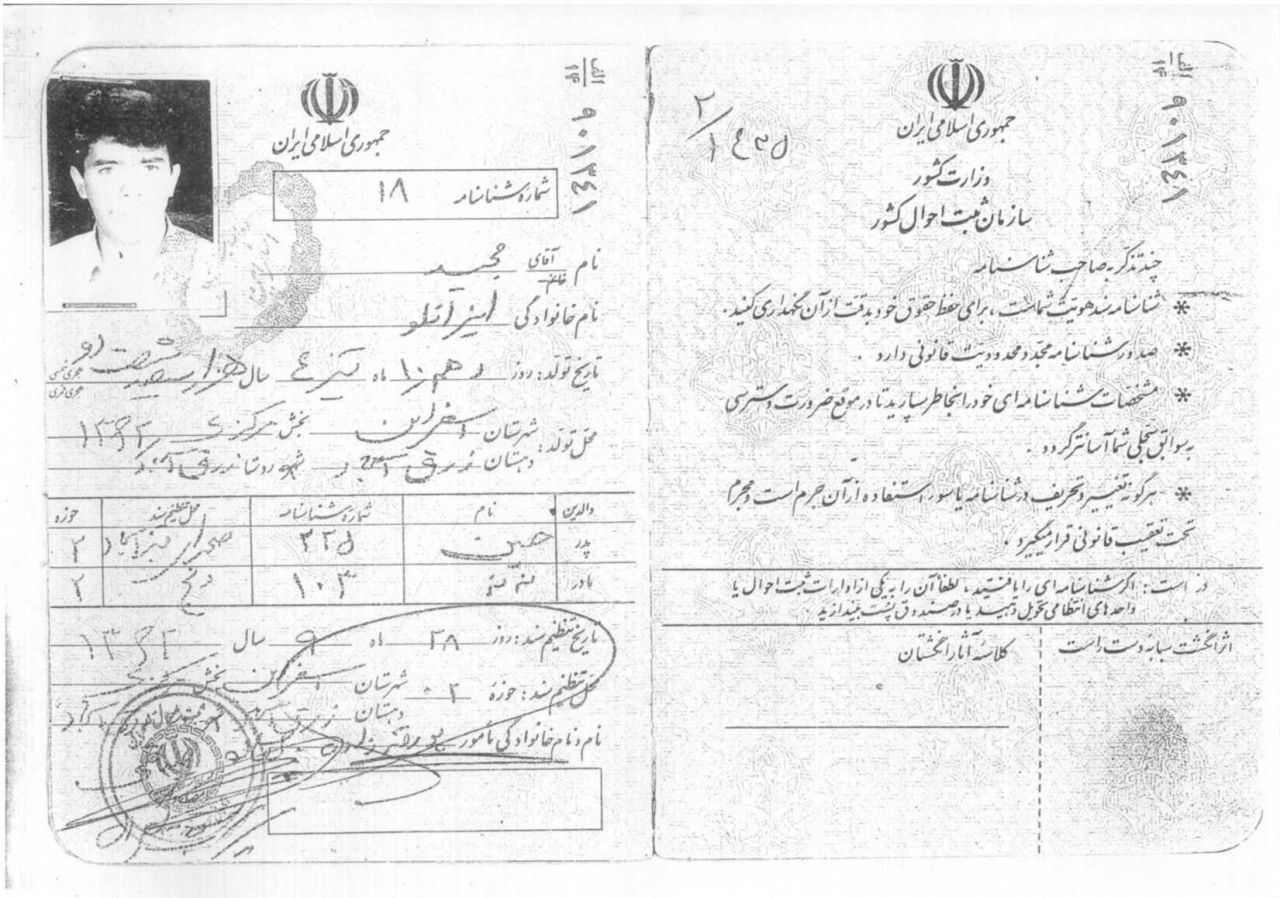 الف
۱۴
۹۰۱۳۴۱
جمهوری اسلامی ایران
وزارت کشور
سازمان ثبت احوال کشور
چند تذکر به صاحب شناسنامه
* شناسنامه سند هویت شماست ، برای حفظ حقوق خود بدقت از آن نگهداری کنید .
* صدور شناسنامه مجدد محدودیت قانونی دارد .
* مشخصات شناسنامه ای خود را بخاطر بسپارید تا در موقع ضرورت دسترسی
به سوابق سجلی شما آسانتر گردد .
* هرگونه تغییر و تحریف در شناسنامه یا سوء استفاده از آن جرم است و مجرم
تحت تعقیب قانونی قرار میگیرد .
اگر شناسنامه ای را یافتید ، لطفاً آن را به یکی از ادارات ثبت احوال یا
واحدهای انتظامی تحویل دهید یا در صندوق پست بیندازید
اثر انگشت سبابه دست راست
کلاسه آثار انگشتان
الف
۱۴
۹۰۱۳۴۱
جمهوری اسلامی ایران
شماره شناسنامه ۱۸
نام آقای خانم مجید
نام خانوادگی
تاریخ تولد : روز دهم ۱۰ ماه تیر ۴ سال هزار سیصد شصت دو هجری شمسی هجری قمری
محل تولد : شهرستان اسفراین بخش مرکزی ۱۳۶۲
دهستان زرق آباد روستا زرق آباد
والدین نام شماره شناسنامه محل تنظیم سند حوزه
پدر حسین ۲۲۵ ۲
مادر ۱۰۳ ۲
تاریخ تنظیم سند : روز ۲۸ ماه ۹ سال ۱۳۶۲
محل تنظیم سند : حوزه ۲ شهرستان اسفراین بخش
دهستان
نام و نام خانوادگی مأمور